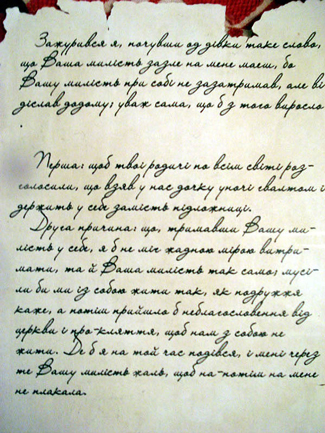 Зажурився я, почувши од дівки таке слово,
що Ваша милість зазле на мене маєш, бо
Вашу милість при собі не зазатримав, але ві
діслав додому; уваж сама, що б з того виросло
.
Перша: щоб твої родичі по всім світі роз-
голосили, що взяв у нас дочку уночі ґвалтом і
держить у себе замість підложниці.
Друга причина: що, тримавши Вашу ми-
лість у себе, я б не міг жадною мірою витри-
мати, та й Ваша милість так само; мусі-
ли би ми із собою жити так, як подружжя
каже, а потім прийшло б неблагословення від
церкви і про-кляття, щоб нам з собою не
жити. Де б я на той час подівся, і мені через
те Вашу милість жаль, щоб на-потім на мене
не плакала.